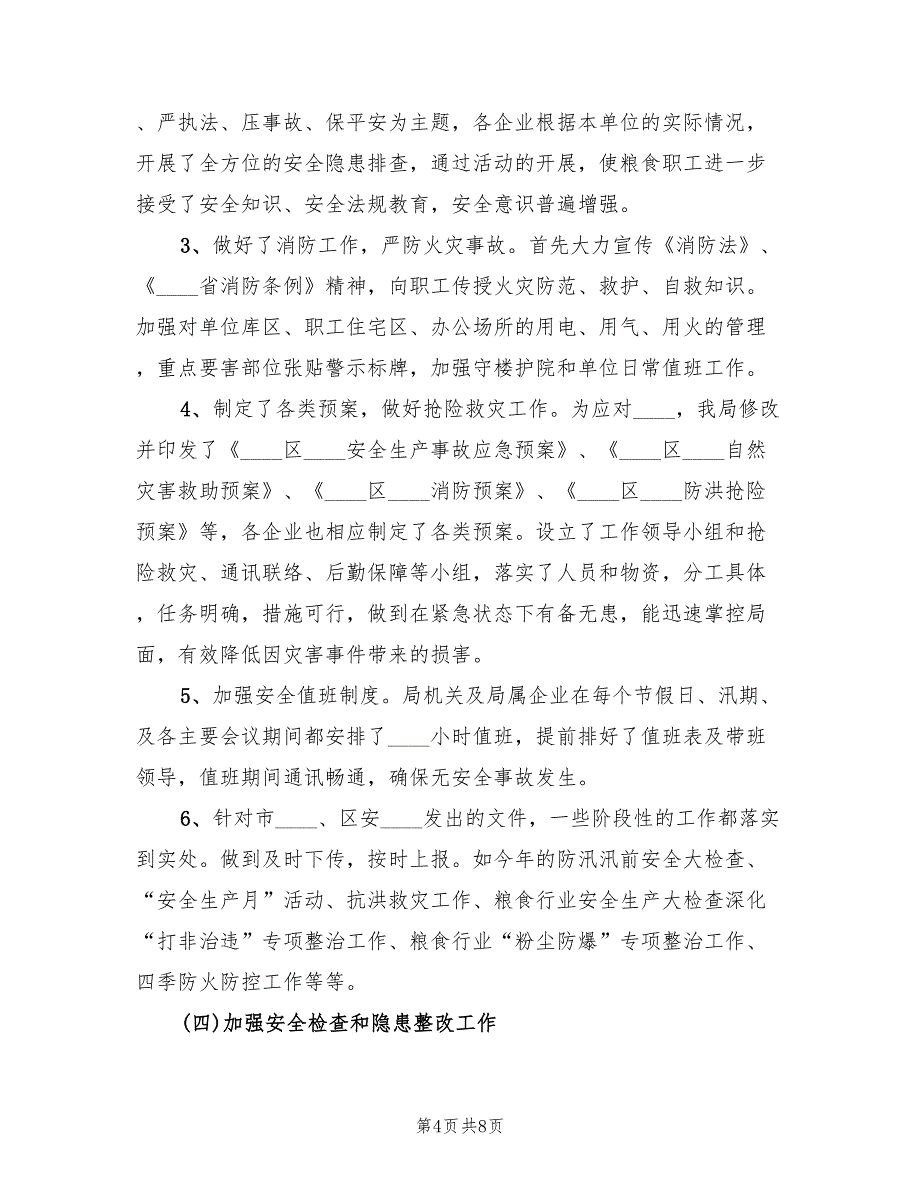 、严执法、压事故、保平安为主题，各企业根据本单位的实际情况，
开展了全方位的安全隐患排查，通过活动的开展，使粮食职工进一步
接受了安全知识、安全法规教育，安全意识普遍增强。
3、做好了消防工作，严防火灾事故。首先大力宣传《消防法》、
《____省消防条例》精神，向职工传授火灾防范、救护、自救知识。
加强对单位库区、职工住宅区、办公场所的用电、用气、用火的管理
，重点要害部位张贴警示标牌，加强守楼护院和单位日常值班工作。
4、制定了各类预案，做好抢险救灾工作。为应对____，我局修改
并印发了《____区____安全生产事故应急预案》、《____区____自然
灾害救助预案》、《____区____消防预案》、《____区____防洪抢险
预案》等，各企业也相应制定了各类预案。设立了工作领导小组和抢
险救灾、通讯联络、后勤保障等小组，落实了人员和物资，分工具体
，任务明确，措施可行，做到在紧急状态下有备无患，能迅速掌控局
面，有效降低因灾害事件带来的损害。
5、加强安全值班制度。局机关及局属企业在每个节假日、汛期、
及各主要会议期间都安排了____小时值班，提前排好了值班表及带班
领导，值班期间通讯畅通，确保无安全事故发生。
6、针对市____、区安____发出的文件，一些阶段性的工作都落实
到实处。做到及时下传，按时上报。如今年的防汛汛前安全大检查、
“安全生产月”活动、抗洪救灾工作、粮食行业安全生产大检查深化
“打非治违”专项整治工作、粮食行业“粉尘防爆”专项整治工作、
四季防火防控工作等等。
(四)加强安全检查和隐患整改工作
第4页 共8页